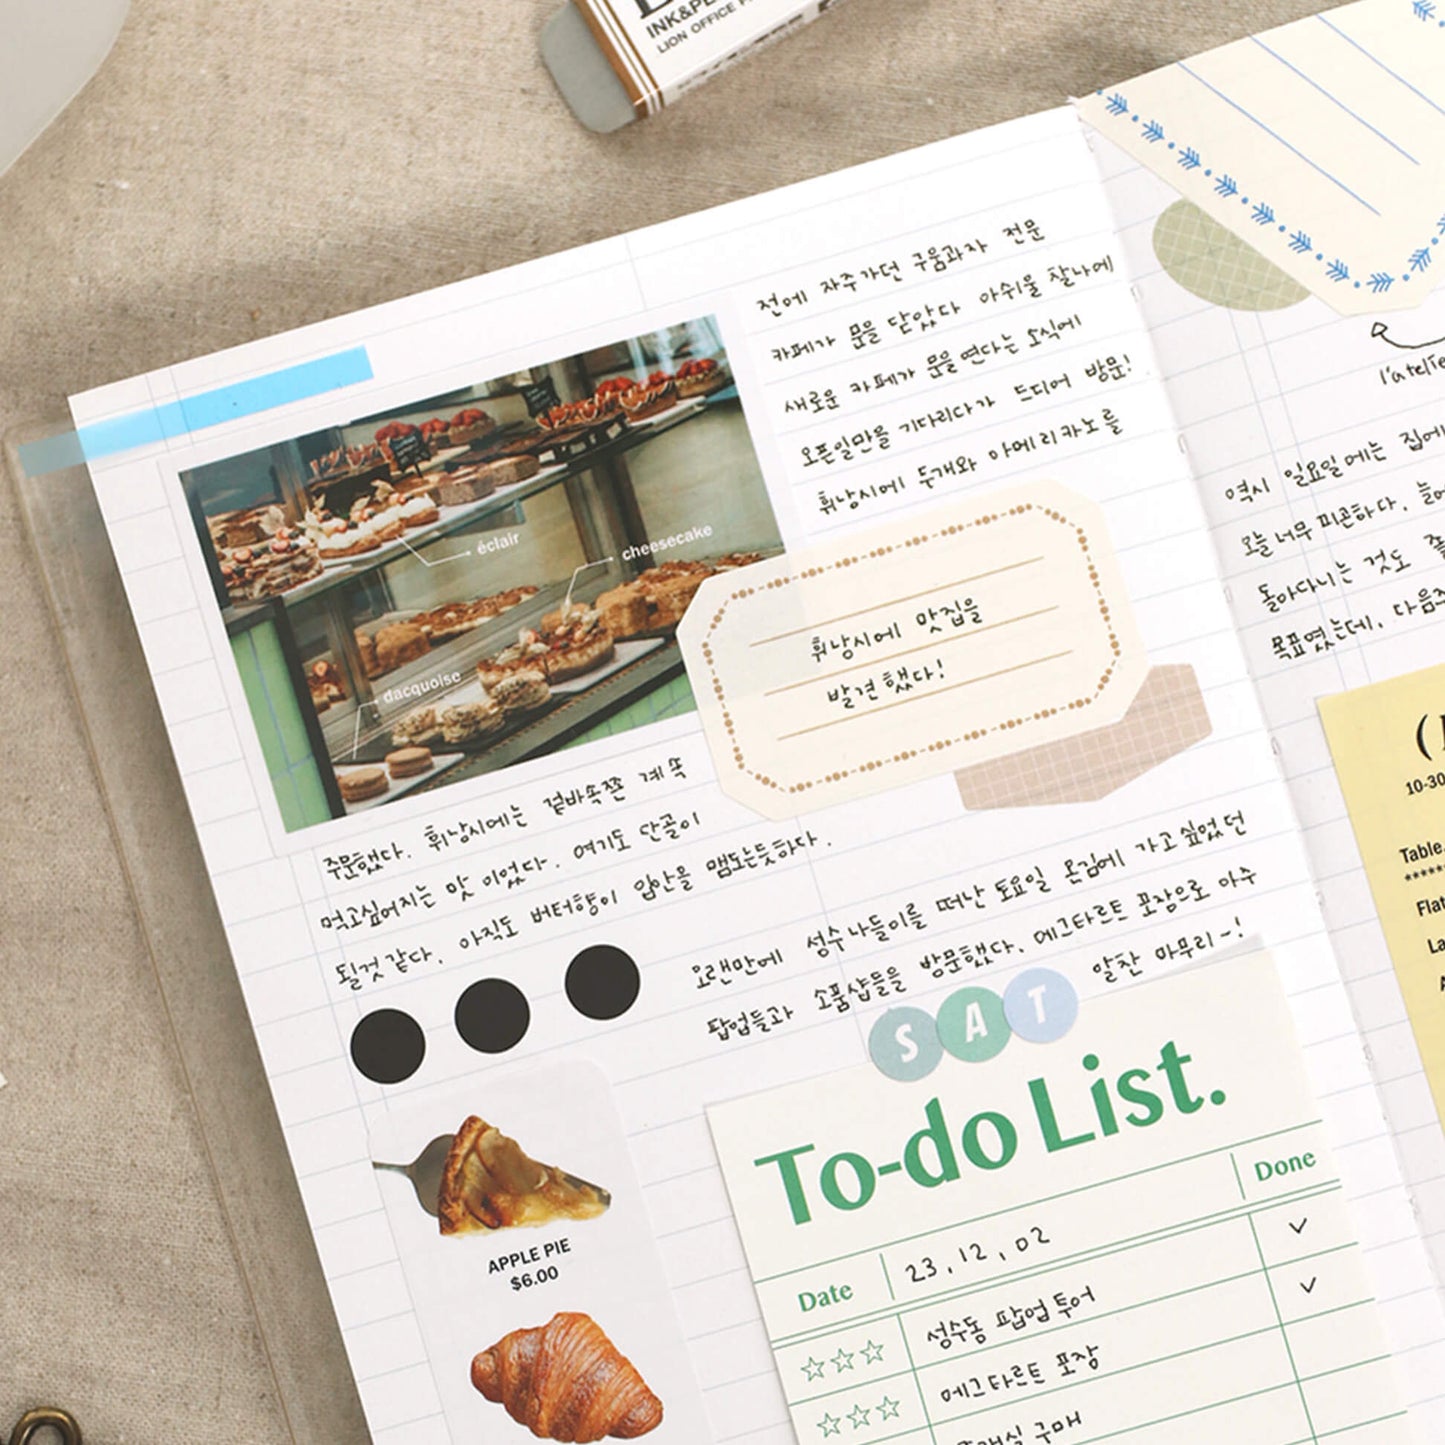 INK&PE
LION OFFICE
전에 자주가던 구움과자 전문
카페가 문을 닫았다 아쉬울 찰나에
새로운 카페가 문을 연다는 소식에
오픈일만을 기다리다가 드디어 방문!
휘낭시에 두개와 아메리카노를
éclair
cheesecake
dacquoise
휘낭시에 맛집을
발견했다!
주문했다. 휘낭시에는 겉바속쫀 계속
먹고싶어지는 맛 이었다. 여기도 단골이
될것 같다. 아직도 버터향이 입안을 맴도는듯하다.
오랜만에 성수나들이를 떠난 토요일 온김에 가고 싶었던
팝업들과 소품샵들을 방문했다. 에그타르트 포장으로 아주
알찬 마무리~!
SAT
To-do List.
Done
Date 23.12.02
성수동 팝업투어
에그타르트 포장
구매
APPLE PIE
$6.00
l'atelie
역시 일요일에는 집에
오늘 너무 피곤하다. 늘어
돌아다니는 것도
목표였는데, 다음주
(
10-30
Table.
*****
Flat
La
A